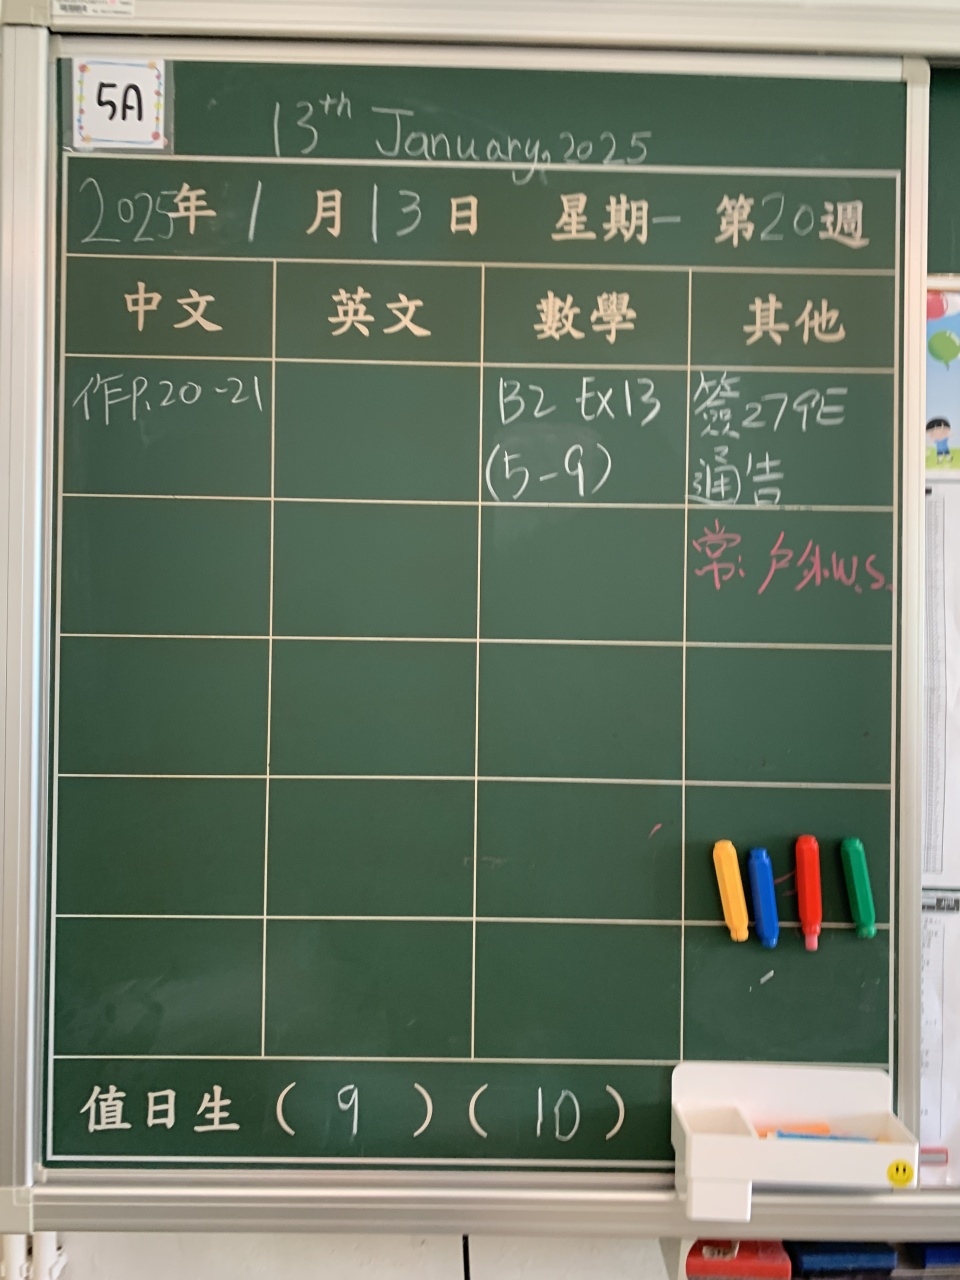 5A
13th January, 2025
2025年1月13日 星期一 第20週
中文 英文 數學 其他
作P.20-21
B2 Ex13
(5-9)
簽279E
通告
常: 戶外W.S.
值日生(9)(10)